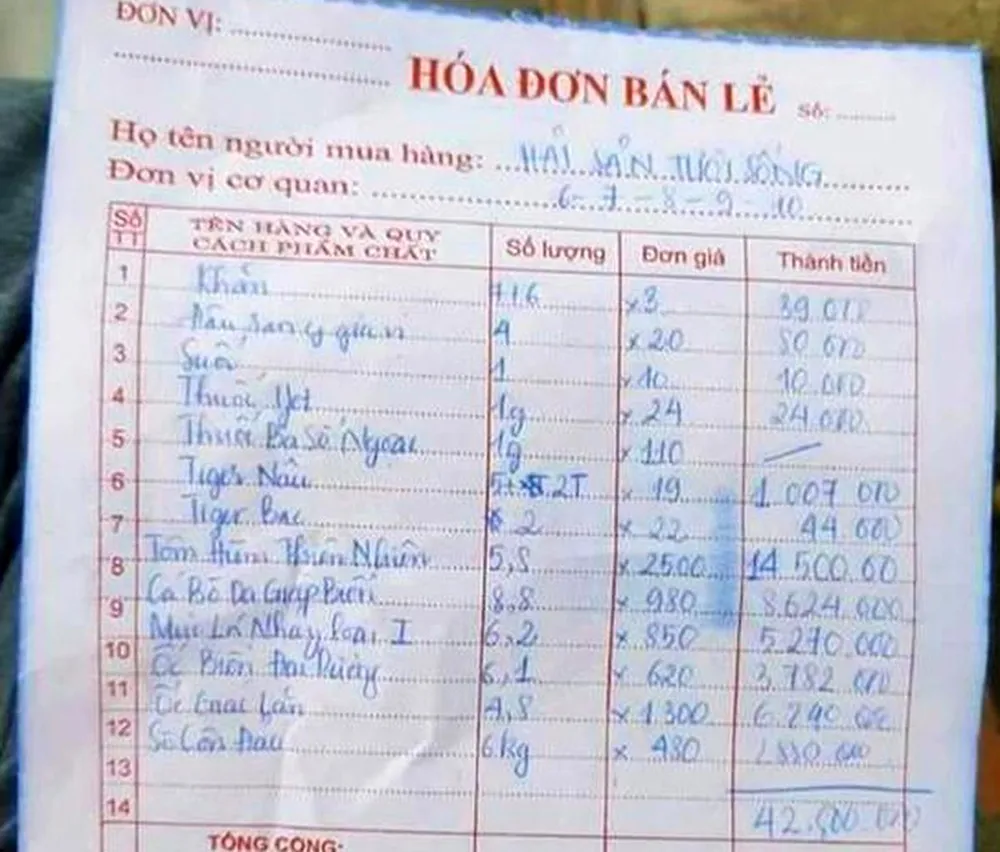 ĐƠN VỊ: ....................
HÓA ĐƠN BÁN LẺ Số: ..........
Họ tên người mua hàng: HẢI SẢN TƯƠI SỐNG
Đơn vị cơ quan: 6-7-8-9-10
Số TT TÊN HÀNG VÀ QUY CÁCH PHẨM CHẤT Số lượng Đơn giá Thành tiền
1 Khăn x 3
2 4 x 20 80 000
3 Suối 1 x 10 10.000
4 Thuốc Jet 1g x 24 24.000
5 Thuốc Ba Số Ngoại 1g x 110
6 Tiger Nâu x 19 1 007 000
7 Tiger Bạc 2 x 22 44 000
8 Tôm Hùm Thiên Nhiên 5,8 x 2500 14 500.00
9 Cá Bò Da Giáp Biển 8.8 x 980 8.624 000
10 Mực Lá Nháy loại I 6,2 x 850 5.270.000
11 Ốc Biển Đại Dương 6,1 x 620 3.782 000
12 Ốc Lớn 4,8 x 1300 6.240 000
13 Sò 6kg x 480 2880.000
14 42.
TỔNG CỘNG: